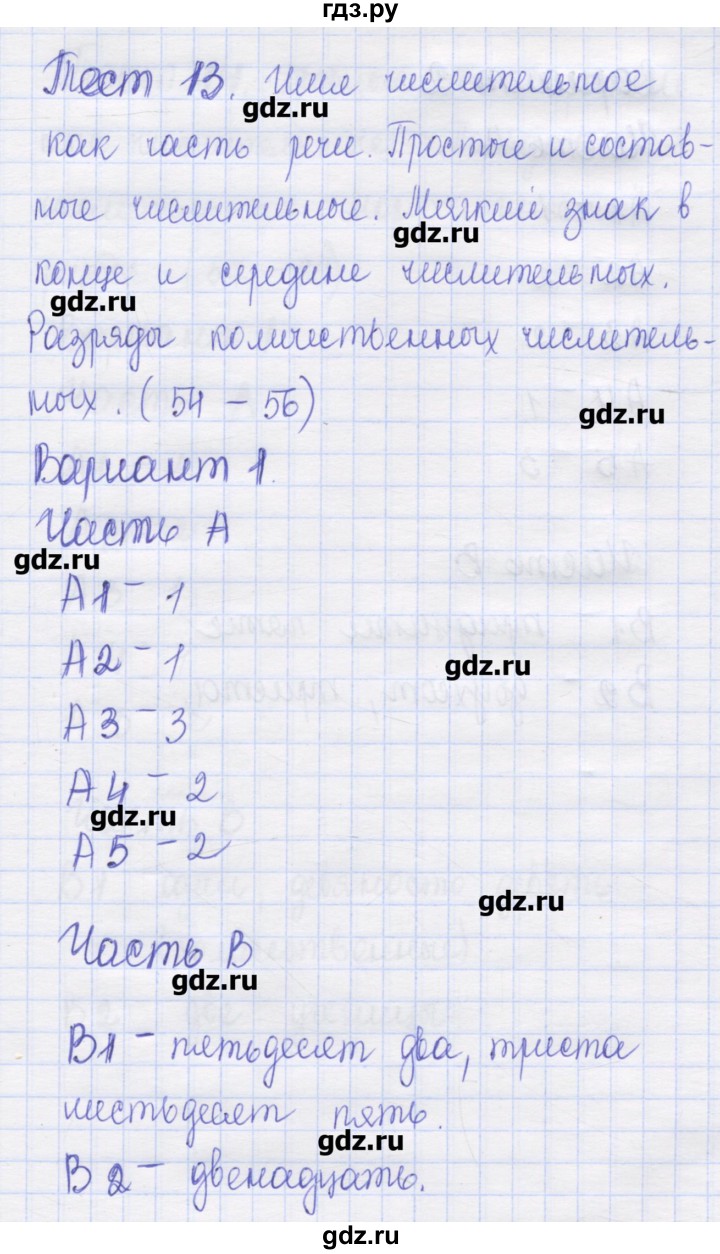 гдз.ру
Тест 13. Имя числительное
gdz.ru
как часть речи. Простые и состав-
ные числительные. Мягкий знак в
gdz.ru
конце и середине числительных.
gdz.ru
Разряды количественных числитель-
ных. (54 – 56)
gdz.ru
Вариант 1.
Часть А
gdz.ru
А1 – 1
А2 – 1
gdz.ru
А3 – 3
А4 – 2
gdz.ru
А5 – 2
gdz.ru
Часть В
gdz.ru
В1 – пятьдесят два, триста
шестьдесят пять.
gdz.ru
В2 – двенадцать.
gdz.ru